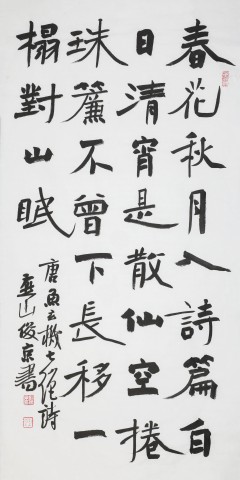 春花秋月入詩篇白
日清宵是散仙空捲
珠簾不曾下長移一
榻對山眠
唐魚玄機七絕詩
山俊京書